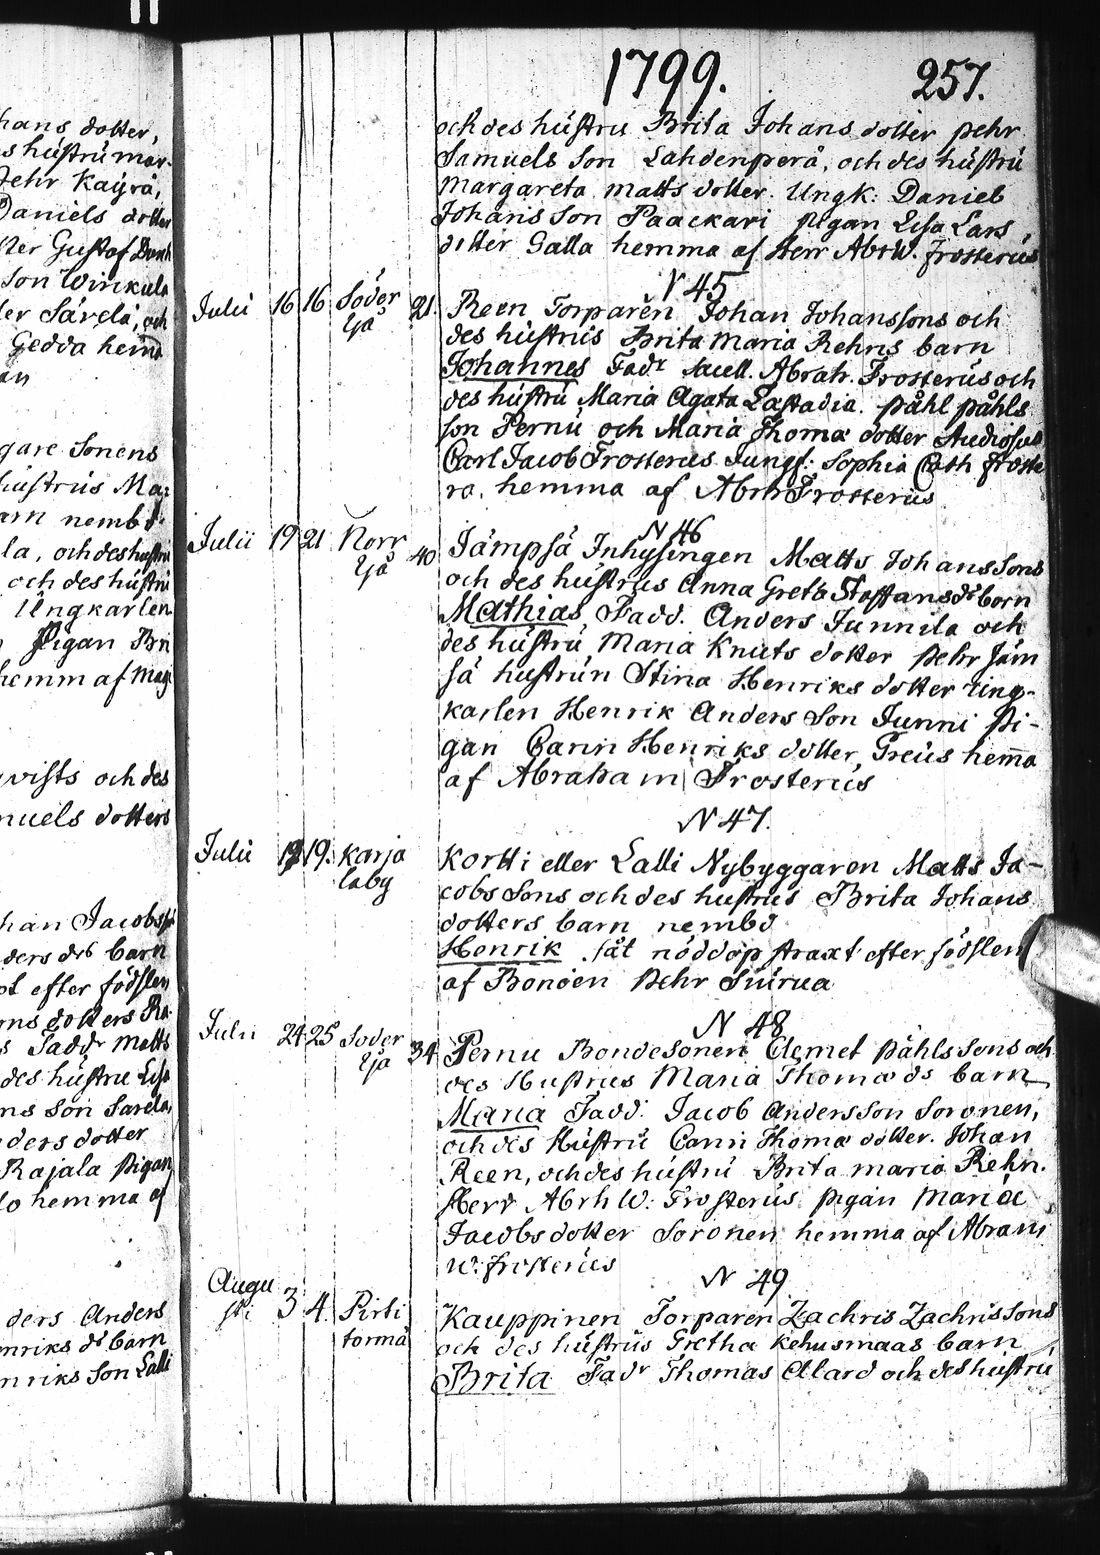 hans dotter,
s hustru mar-
Pehr Kaÿrä,
Daniels dotter
ter Gustaf
Son Winkula
ler Särelä, och
Gedda hema
an
gare Sonens
hustrus Ma:
arn nembd.
la, och des hustru
och des hustru
Ungkarlen
Pigan Bri
hemm af Mag
qvists och des
muels dotters
han Jacobss
ders ds barn
pt efter födslen
rns dotters Ra-
s Faddr Matts
des hustru Lisa
ns Son Sarela,
ders dotter
Rajala Pigan
lo hemma af
ders Anders
nriks ds barn
nriks Son Lalli
1799. 257.
och des hustru Brita Johans dotter Pehr
Samuels Son Lahdenperä, och des hustru
Margareta Matts dotter. Ungk: Daniel
Johans Son Paackari Pigan Lisa Lars
dotter Galla hemma af Herr AbrW. Frosterus
N 45
Julii 16 16 Söder 21. Reen Torparen Johan Johanssons och
yå des hustrus Brita Maria Rehns barn
Johannes Fadr Abrah. Frosterus och
des hustru Maria Agata Lastadia. Påhl Påhls
son Pernu och Maria Thomæ dotter Studiosus
Carl Jacob Frosterus Jungf: Sophia Cath Froste
ra. hemma af Abrh Frosterus
N 46
Julii 19 21 Norr 40 Jämpsä Inhysingen Matts Johanssons
yå och des hustrus Anna Greta Staffans dr born
Mathias, Fadd. Anders Junnila och
des hustru Maria Knuts dotter Pehr Jäm
sä hustrun Stina Henriks dotter Ung-
karlen Henrik Anders Son Junni Pi-
gan Carin Henriks dotter, Greus hema
af Abraham Frosterus
N 47.
Julii 19 19. Karja Kortti eller Lalli Nybyggaren Matts Ja-
laby cobs Sons och des hustrus Brita Johans
dotters barn nembd
Henrik fåt nöddop straxt efter födslen
af Bonden Pehr Siurua
N 48
Julii 24 25 Söder 34 Pernu Bondesonen Clemet Påhls Sons och
yå des Hustrus Maria Thomæ ds barn
Maria Fadd: Jacob Andersson Soronen,
och des Hustru Carin Thomæ dotter. Johan
Reen, och des hustru Brita maria Rehn.
Herr Abrh W: Frosterus Pigan Maria
Jacobs dotter Soronen hemma af Abram
W: Frosterus
N 49
Augu
sti 3 4. Pirti Kauppinen Torparen Zachris Zachrissons
torma och des hustrus Gretha Kehusmaas barn
Brita Fadr Thomas Alard och des hustru